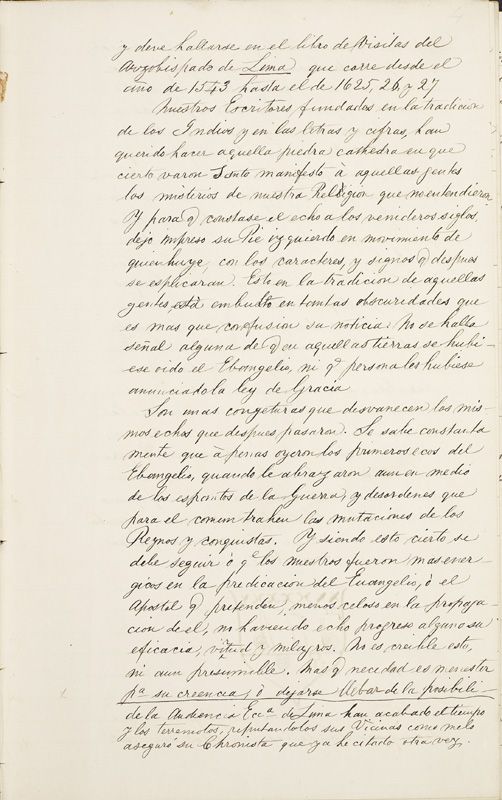 y deve hallarse en el libro de Visitas del
Arzobispado de Lima que corre desde el
año de 1543 hasta el de 1625, 26, y 27
Nuestros Escritores fundados en la tradicion
de los Indios y en las letras y cifras, han
querido hacer aquella piedra cathedra en que
cierto varon Santo manifestó à aquellas gentes
los misterios de nuestra Religion que no entendieron
Y para q constase el echo a los venideros siglos,
dejo impreso su Pie izquierdo en movimiento de
quien huye, con los caracteres, y signos q despues
se esplicaran. Esto en la tradicion de aquellas
gentes está embuelto en tantas obscuridades que
es mas que confusion su noticia. No se halla
señal alguna de q en aquellas tierras se hubi-
ese oido el Ebangelio, ni q persona los hubiese
anunciado la ley de Gracia
Son unas congeturas que desvanecen los mis-
mos echos que despues pasaron. Se sabe constanta
mente que à penas oyeron los primeros ecos del
Ebangelio, quando le abrazaron aun en medio
de los espantos de la Guerra, y desordenes que
para el comun trahen las mutaciones de los
Reynos y conquistas. Y siendo esto cierto se
debe seguir ó qe los nuestros fueron mas ener-
gicos en la predicacion del Evangelio, ò el
Apostol q pretenden, menos celoso en la propaga
cion de el, no haviendo echo progreso alguno su
eficacia, virtud y milagros. No es creible esto,
ni aun presumible. Mas q necedad es menester
pa su creencia, ò dejarse llebar de la posibili-
de la Audiencia Ecca de Lima han acabado el tiempo
y los terremotos, reputandolos sus Vicinas como me lo
aseguró su Chronista que ya he citado otra vez.